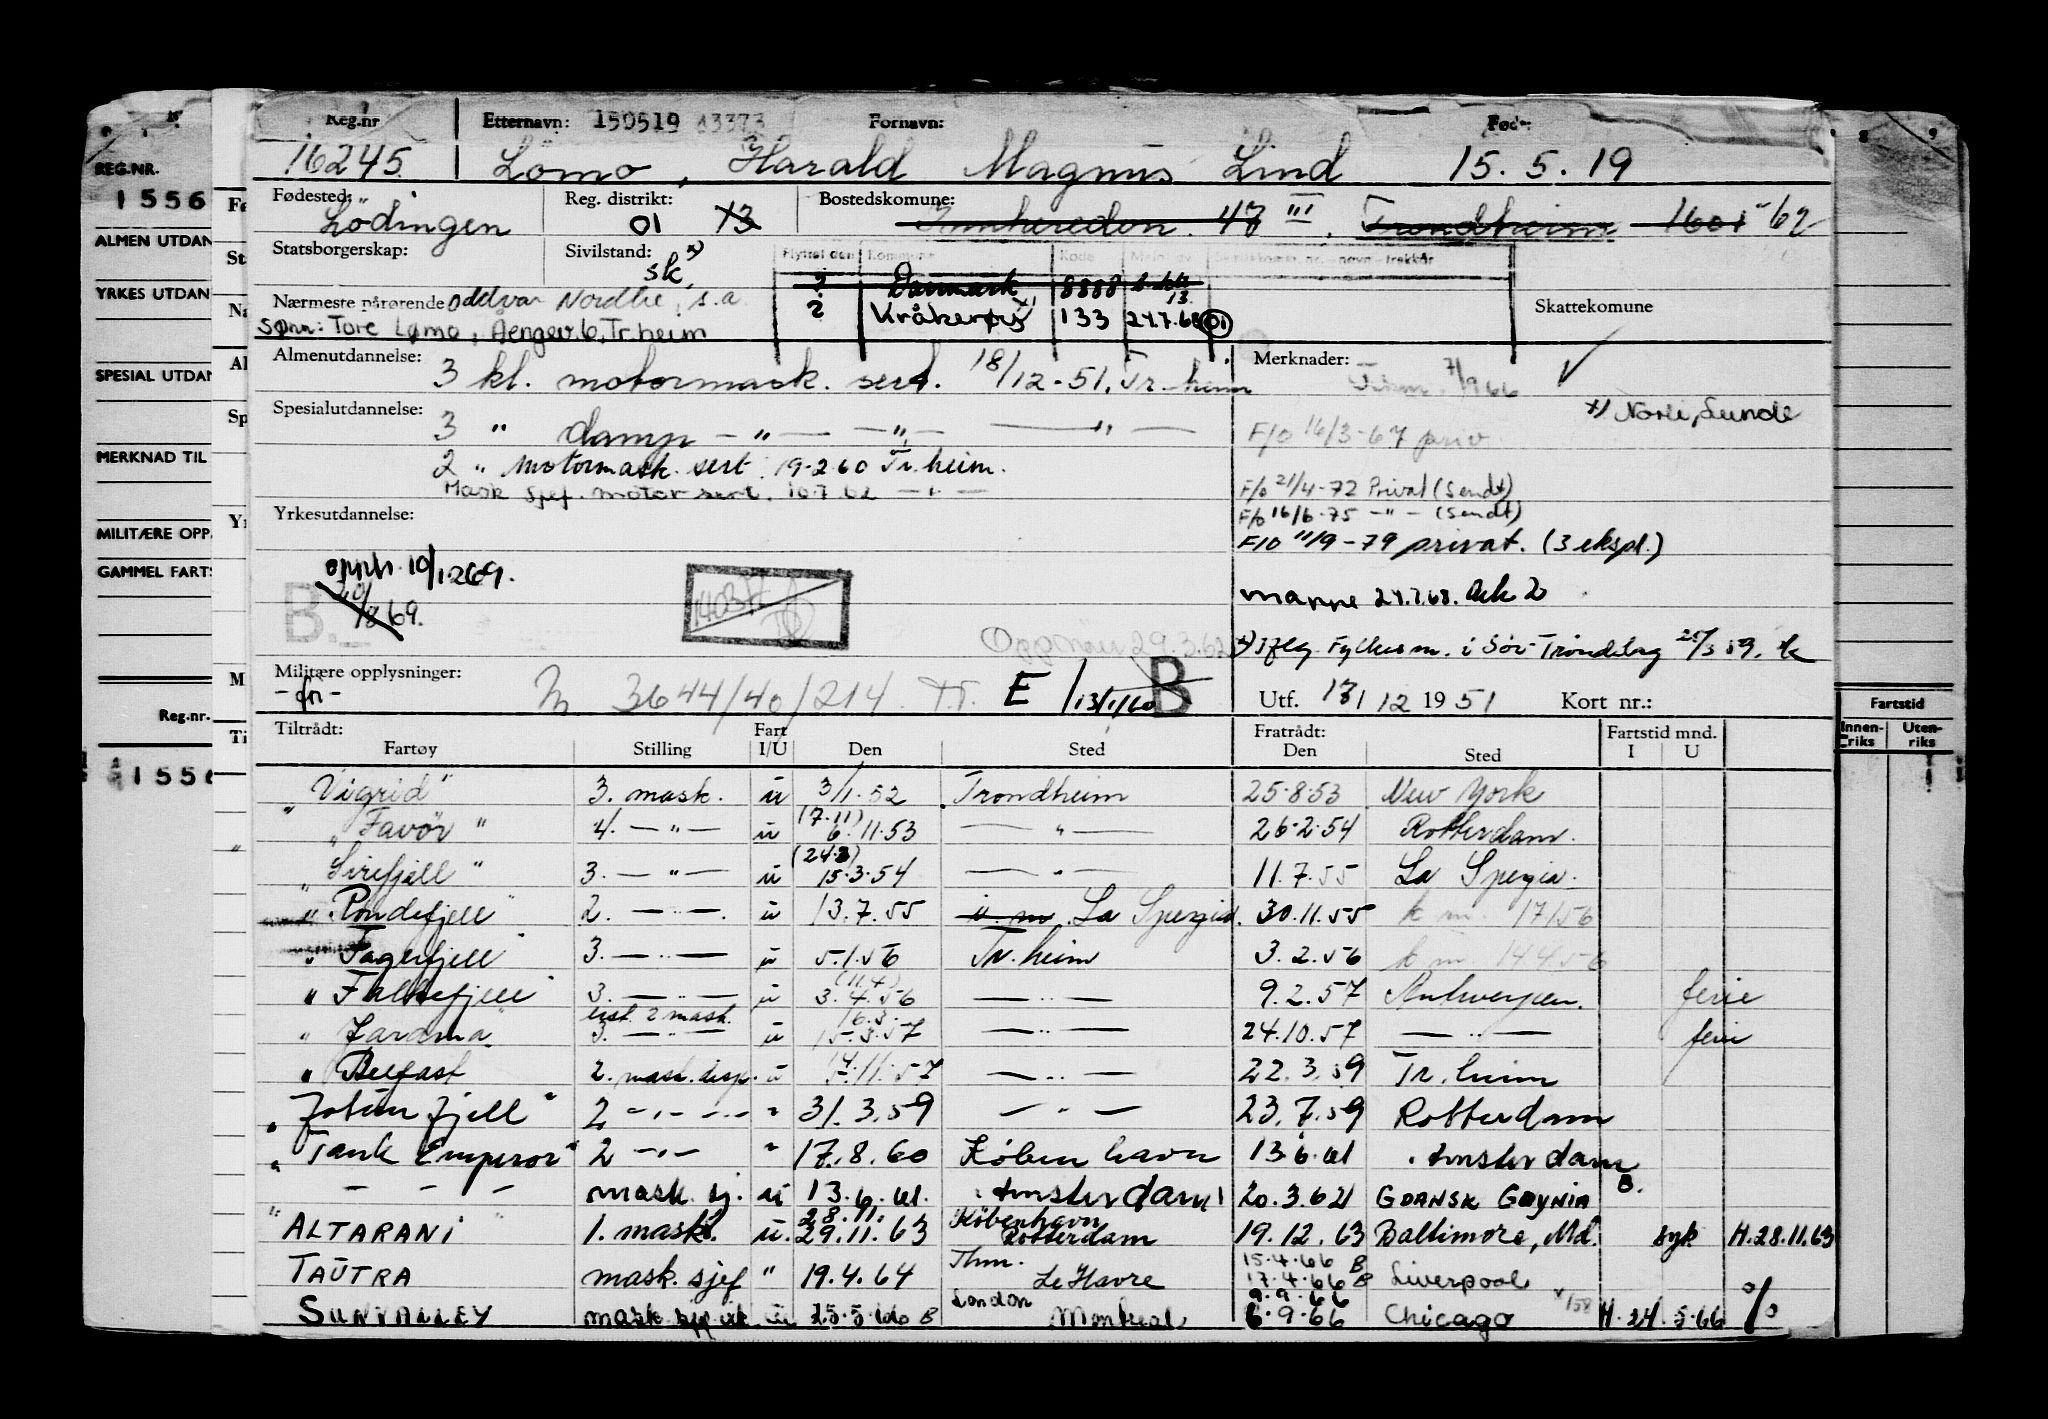 Reg.nr Etternavn: 150519 43373 Fornavn: Fød
16245 Lömo, Harald Magnus Lind 15.5.19
REG.NR.
1556
Fødested: Reg. distrikt: Bostedskomune:
Lödingen 01 13 Innhereden. 47 III. Trondheim 1601 - 62
ALMEN UTDAN
Statsborgerskap: Sivilstand: sk x)
Flyttet den Kommune Kode
2 Danmark 8888
2 Kråkerøy 133 24.7.68 01
YRKES UTDAN
Nærmeste pårørende Oddvar Nordlie, s.a.
Skattekomune
Sønn: Tore Lømo, Aengev. 6, Tr.heim
Almenutdannelse: 3 kl. motormask. sert. 18/12-51, Tr.heim
Merknader: 7/9 66
SPESIAL UTDAN
x) Norli, Lunde
Spesialutdannelse: 3 " damp - " - - " - - " -
F/O 16/3-67 priv
MERKNAD TIL
2 " motormask. sert. 19-2.60 Tr.heim.
Mask sjef. motor sert. 10.7.62 - " -
F/o 21/4-72 Privat (Sendt)
F/o 16/6-75 - " - (sendt)
Yrkesutdannelse:
MILITÆRE OPP.
F/O 11/9-79 privat. (3 ekspl.)
GAMMEL FARTS
opph. 10/1269.
69.
B.
mappe 24.7.68. Ark 2
Oppgnav 29.3.62
x) Iflg. Fylkesm. i Sör-Tröndelag 25/3 59.
Militære opplysninger:
-fri- M 3644/40/214 Tr. E /13/1/60 B
Utf. 18/12 1951 Kort nr.:
Reg.nr.
1556
Fartstid
Innen-riks Uten-riks
Tiltrådt: Fart Fratrådt: Fartstid mnd.
Fartøy Stilling I/U Den Sted Den Sted I U
"Vigrid" 3. mask. u 3/1.52 Trondheim 25.8.53 New York
"Favör" 4. - " - u (7.11) 6.11.53 - " - 26.2.54 Rotterdam.
"Sirefjell" 3. - " - u (24.3) 15.3.54 - " - 11.7.55 La Spezia.
"Rondefjell" 2. - " - u 13.7.55 u.m. La Spezia. 30.11.55 k m. 17156
"Fagerfjell" 3. - " - u 5.1.56 Tr.heim 3.2.56 k m. 14456
"Falkefjell" 3. - " - u (11.4) 3.4.56 - " - 9.2.57 Antwerpen. ferie
" Jarama" 3. - " - u 16.3. 15.3.57 - " - 24.10.57 - " - ferie
" Belfast 2. mask. disp. u 14. 5.11.57 - " - 22.3.59 Tr.heim
"Jotunfjell" 2 - " - " 31.3.59 - " - 23.7.59 Rotterdam
"Tank Emperor" 2 - " - " 17.8.60 København 13.6.61 Amsterdam
- - - mask. sj. u 13.6.61. Amsterdam 20.3.62 GDANSK GDYNIA B.
"ALTARANI" 1. mask. u. 28.11. 29.11.63 København Rotterdam 19.12.63 Baltimore, Md. syk H.28.11.63
TAUTRA mask. sjef " 19.4.64 Thm. Le Havre 15.4.66 B 17.4.66 B Liverpool
SUNVALLEY mask sjef vik u 25.5.66 B London Montreal 9.9.66 6.9.66 Chicago H. 24.5.66 %